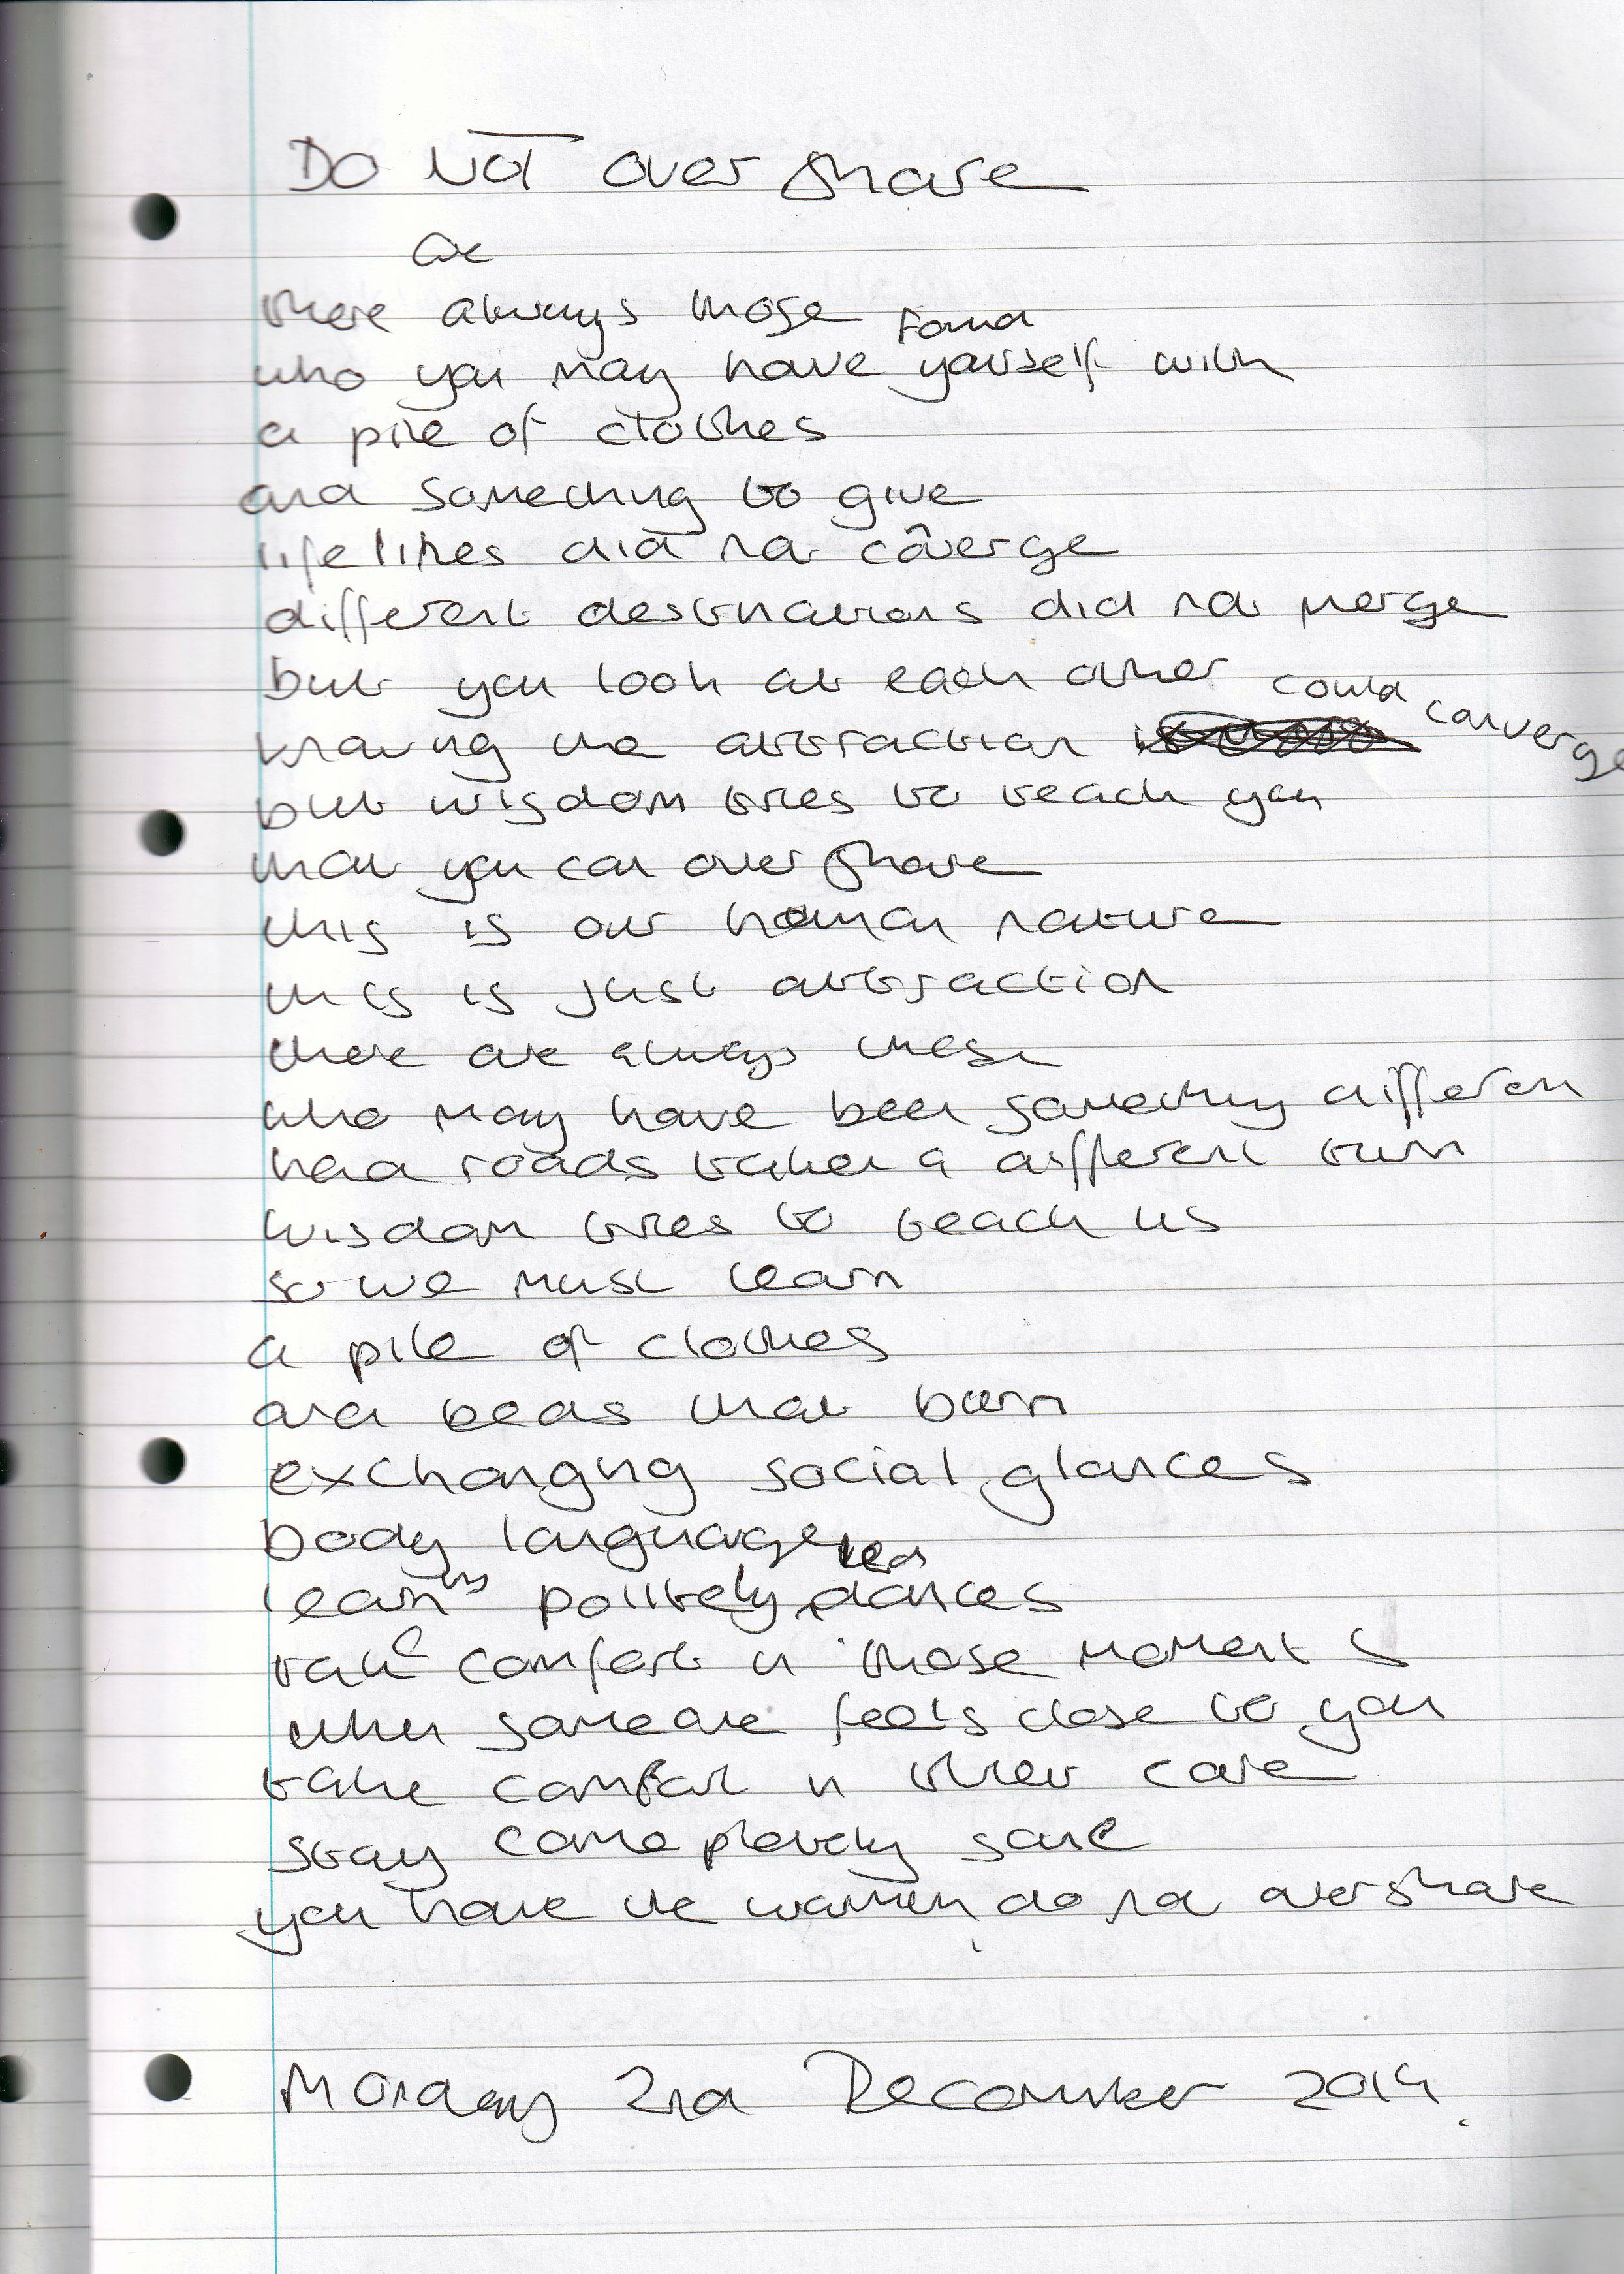 DO NOT over share
are
there always those
found
who you may have yourself with
a pile of clothes
and something to give
lifelines did not converge
different destinations did not merge
but you look at each other
could converge
knowing the attraction
but wisdom tries to teach you
that you can over share
this is our human nature
this is just attraction
there are always these
who may have been something different
had roads taken a different turn
wisdom tries to teach us
so we must learn
a pile of clothes
and beds that burn
exchanging social glances
body language
learns politely dances
take comfort in those moments
when someone feels close to you
take comfort in their care
stay completely sane
you have the warmth, do not overshare
Monday 2nd December 2014.